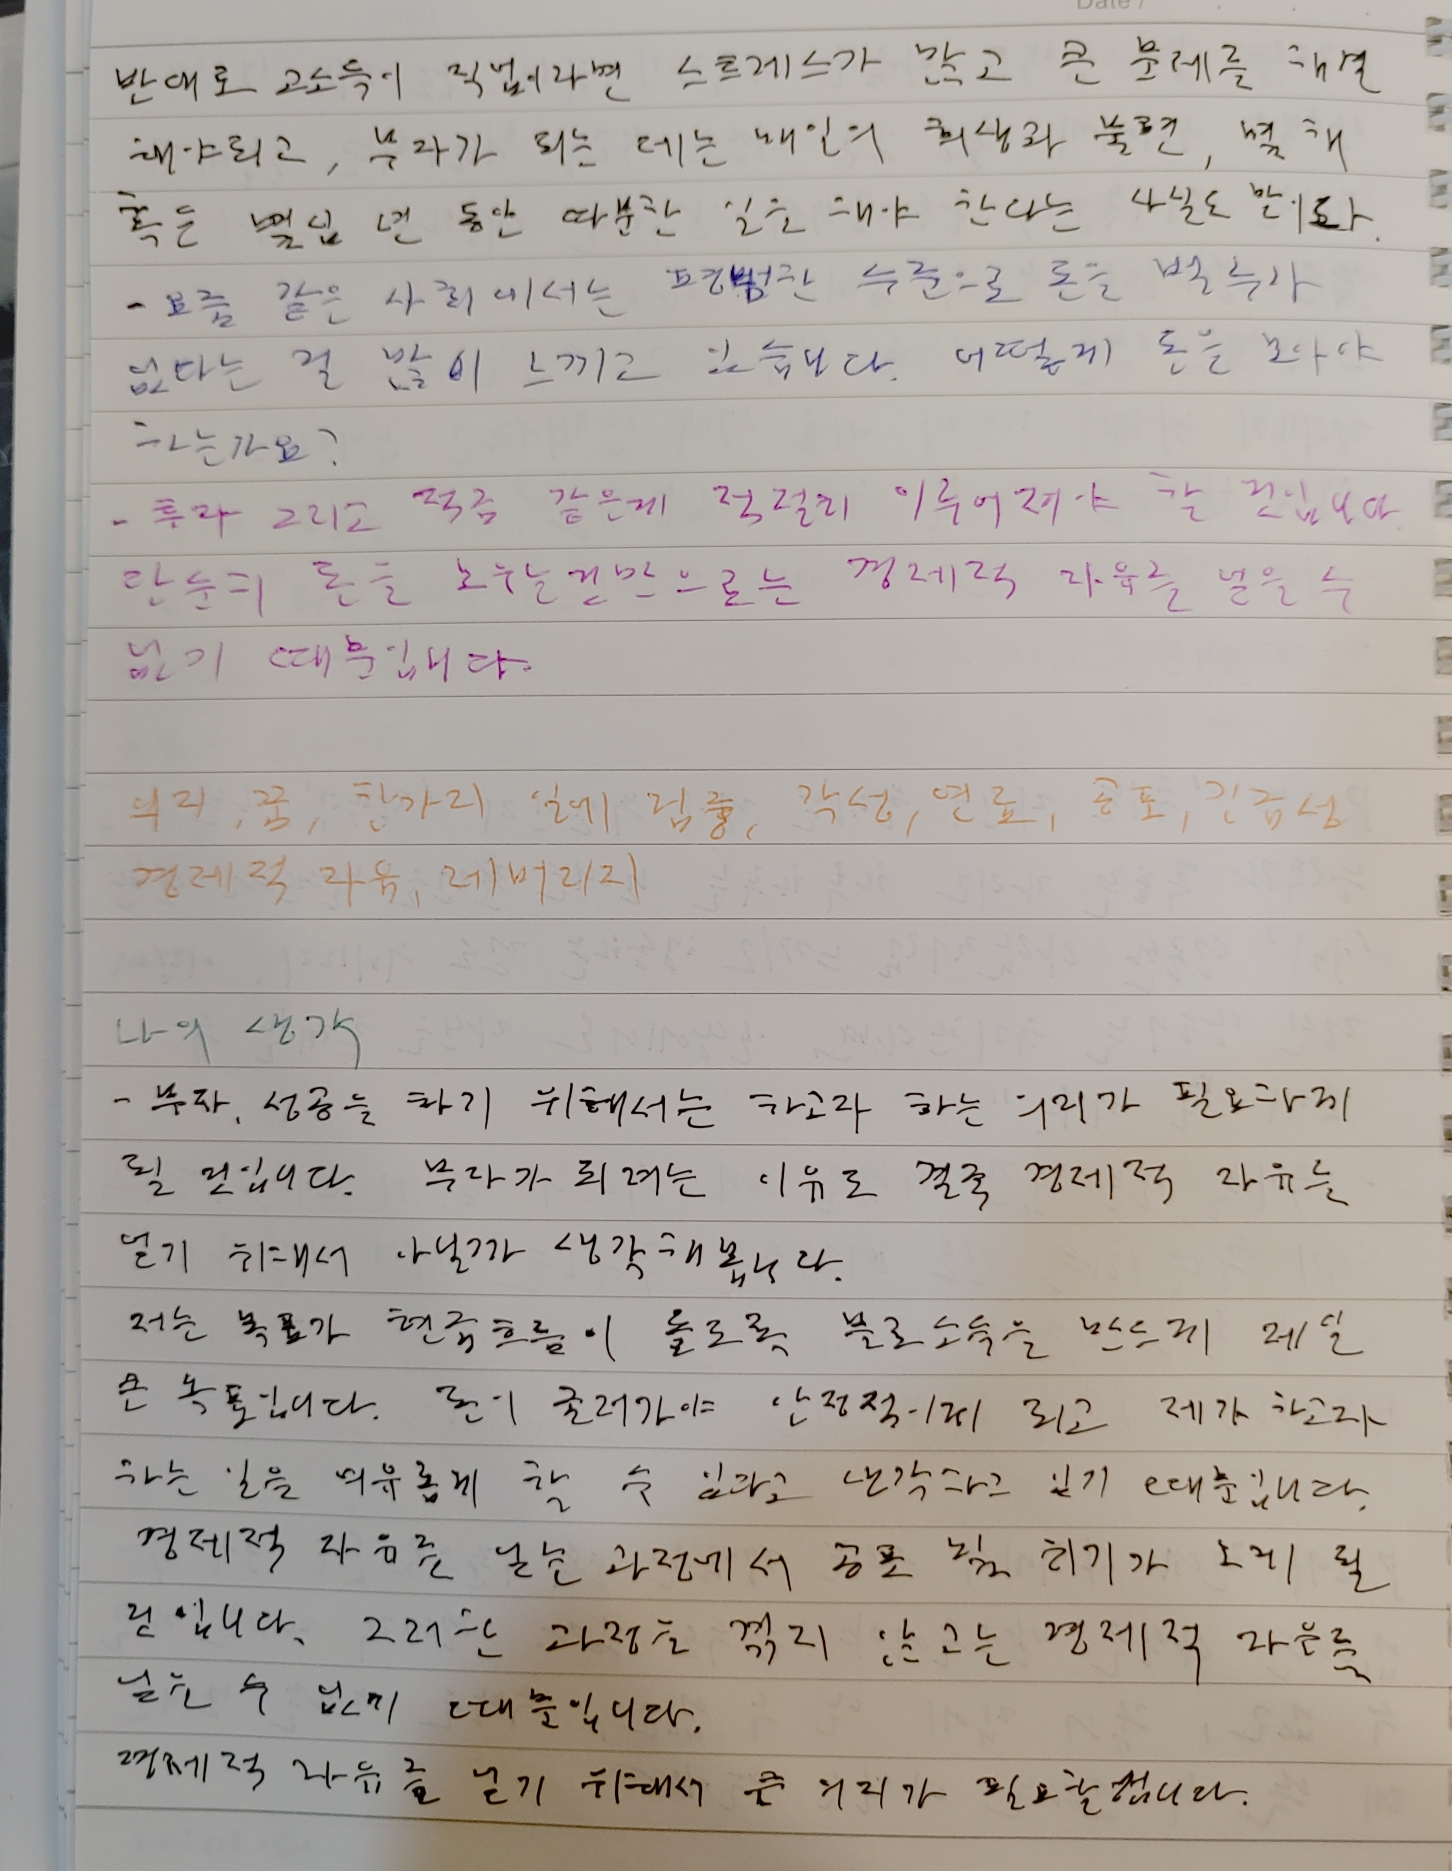 Date /
반대로 고소득이 직업이라면 스트레스가 많고 큰 문제를 해결
해야되고, 부자가 되는 데는 매일의 희생과 불편, 몇 해
혹은 몇십 년 동안 따분한 일을 해야 한다는 사실도 말이다.
- 요즘 같은 사회에서는 평범한 수준으로 돈을 벌 수가
없다는 걸 많이 느끼고 있습니다. 어떻게 돈을 모아야
하는가요?
- 투자 그리고 적금 같은게 적절히 이루어져야 할 것입니다
단순히 돈을 모으는것만으로는 경제적 자유를 얻을 수
없기 때문입니다.
의지, 꿈, 한가지 일에 집중, 각성, 연료, 공포, 긴급성
경제적 자유, 레버리지
나의 생각
- 부자, 성공을 하기 위해서는 하고자 하는 의지가 필요하게
될 것입니다. 부자가 되려는 이유도 결국 경제적 자유를
얻기 위해서 아닐까 생각해봅니다.
저는 목표가 현금흐름이 돌도록 불로소득을 만드는게 제일
큰 목표입니다. 돈이 굴러가야 안정적이게 되고 제가 하고자
하는 일을 여유롭게 할 수 있다고 생각하고 있기 때문입니다.
경제적 자유를 얻는 과정에서 공포 및 위기가 오게 될
것입니다. 그러한 과정을 겪지 않고는 경제적 자유를
얻을 수 없기 때문입니다.
경제적 자유를 얻기 위해서 큰 의지가 필요할겁니다.